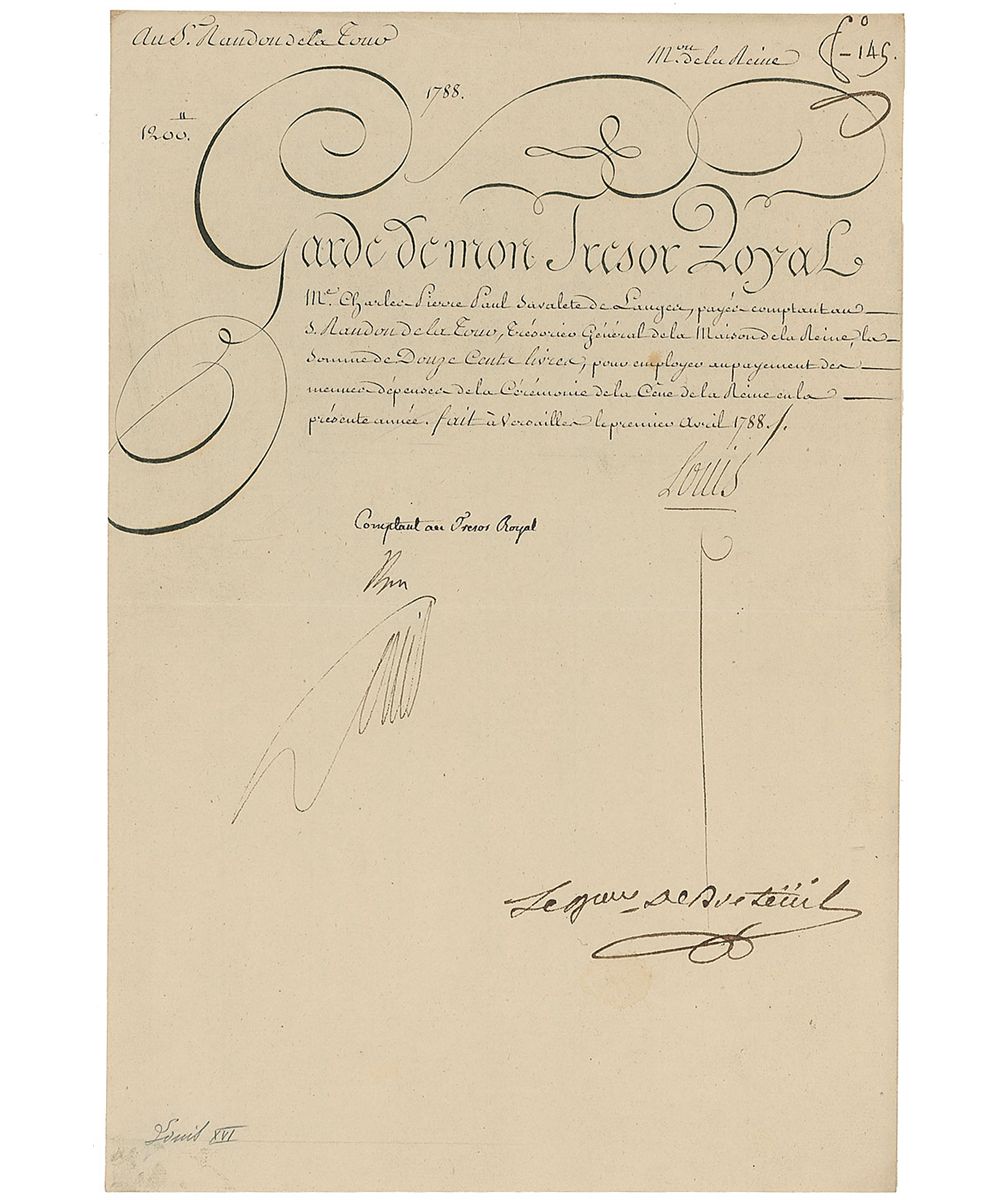 Au S.r Randon de la Tour
M.on de la Reine
- 145.
1788.
1200.ll
Garde de mon Tresor Royal
M.e Charles Pierre Paul Savalete de Langes, payés comptant au
S. Randon de la Tour, Trésorier Général de la Maison de la Reine, la
Somme de Douze Cents livres, pour employer au payement des
menues dépenses de la Cérémonie de la Cène de la Reine en la
présente année. fait à Versailles le premier Avril 1788./.
Louis
Comptant au Tresor Royal
Bon
Louis
Le Bon De Breteüil
Louis XVI